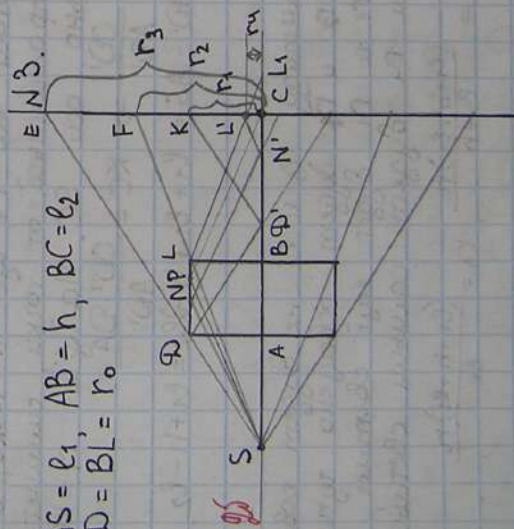 N3.
AS = ℓ₁, AB = h, BC = ℓ₂
AD = BL = r₀
E
F
K
L'
r₃
r₂
r₁
r₄
C L₁
N'
D'
B
L
P
N
D
A
S